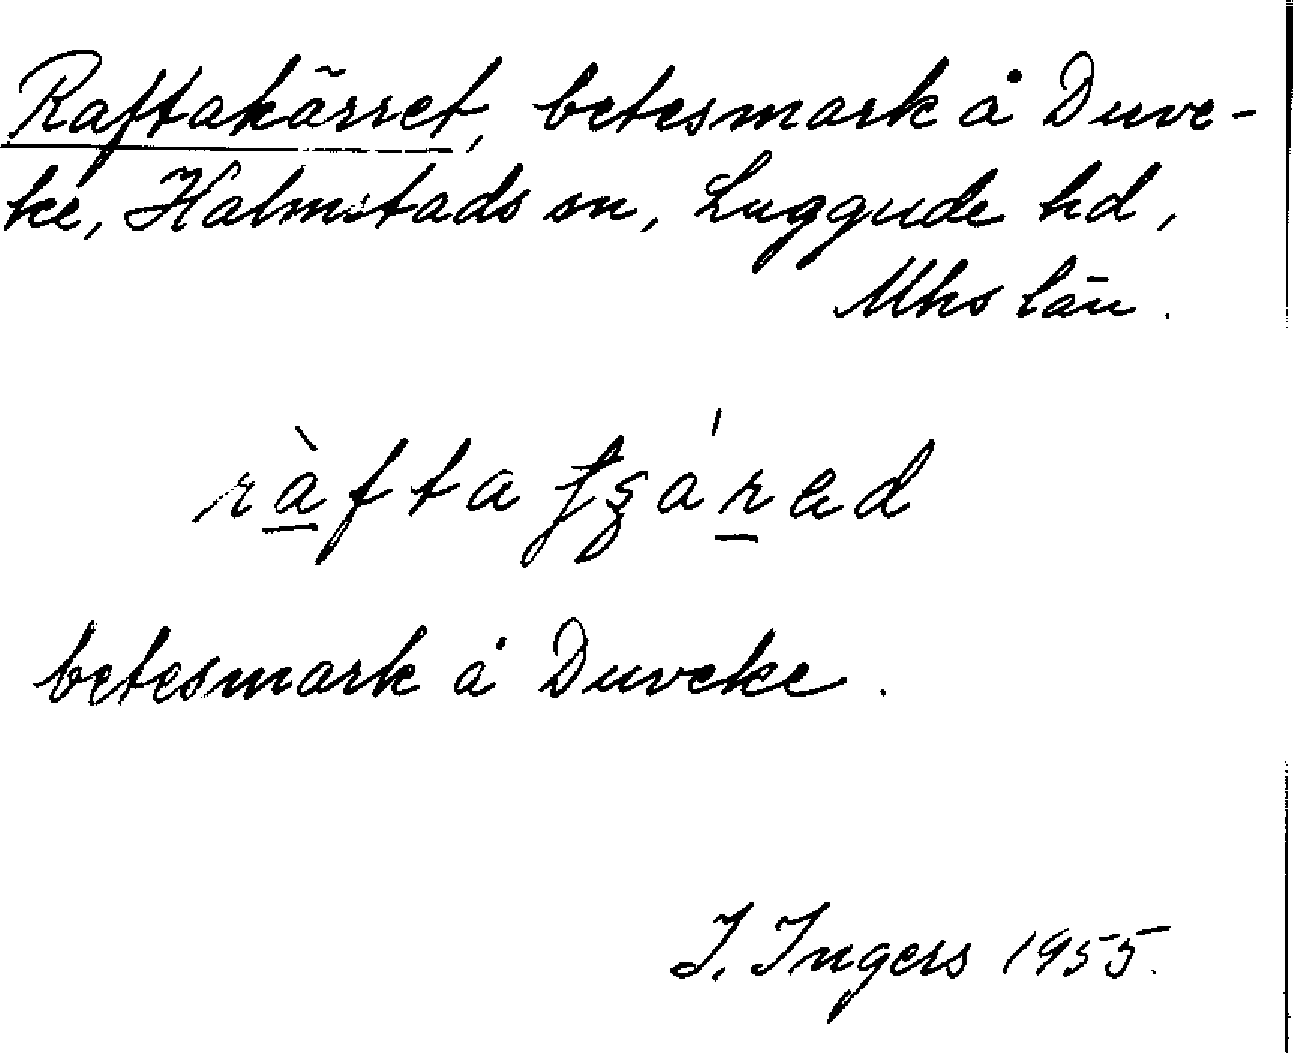 Raftakärret, betesmark å Duve-
ke, Halmstads sn, Luggude hd,
Mhs län.
betesmark å Duveke.
I. Ingers 1955.